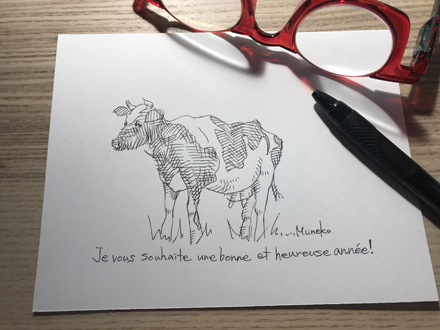 ...Muneko.
Je vous souhaite une bonne et heureuse année!